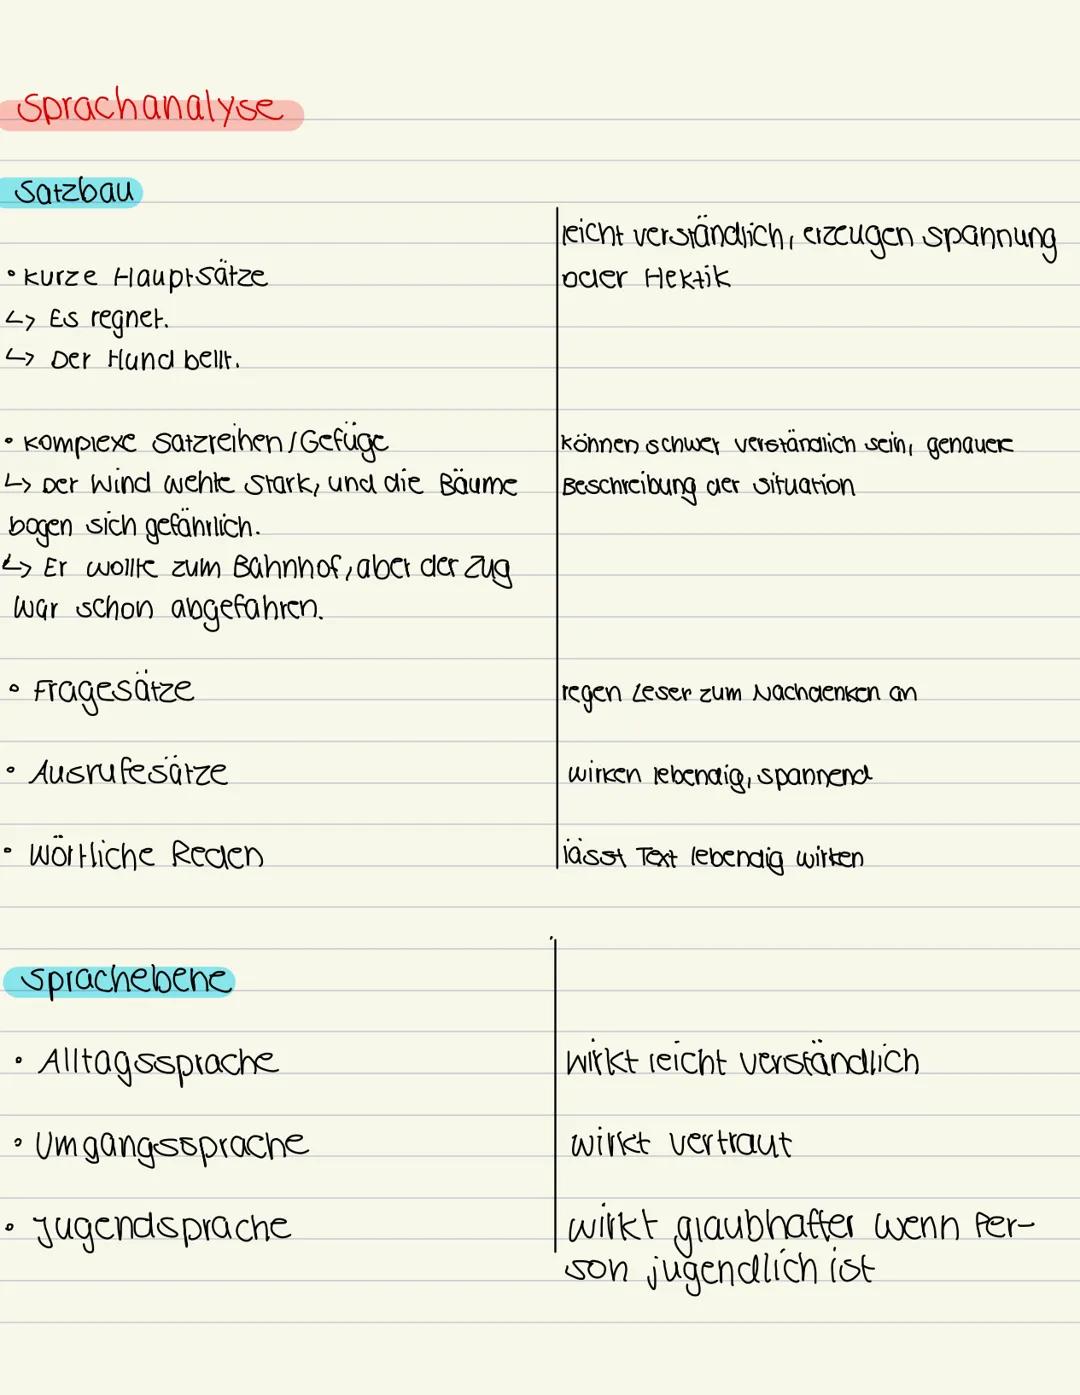 Sprachanalyse
Satzbau
leicht verständlich, erzeugen Spannung
• kurze Hauptsätze
oder Hektik
↳ Es regnet.
↳ Der Hund bellt.
• komplexe Satzreihen / Gefüge
können schwer verständlich sein, genauere
↳ Der Wind wehte stark, und die Bäume
Beschreibung der Situation
bogen sich gefährlich.
↳ Er wollte zum Bahnhof, aber der Zug
war schon abgefahren.
• Fragesätze
regen Leser zum Nachdenken an
• Ausrufesätze
wirken lebendig, spannend
• Wörtliche Reden
lässt Text lebendig wirken
Sprachebene
• Alltagssprache
wirkt leicht verständlich
• Umgangssprache
wirkt vertraut
• Jugendsprache
wirkt glaubhafter wenn Per-
son jugendlich ist